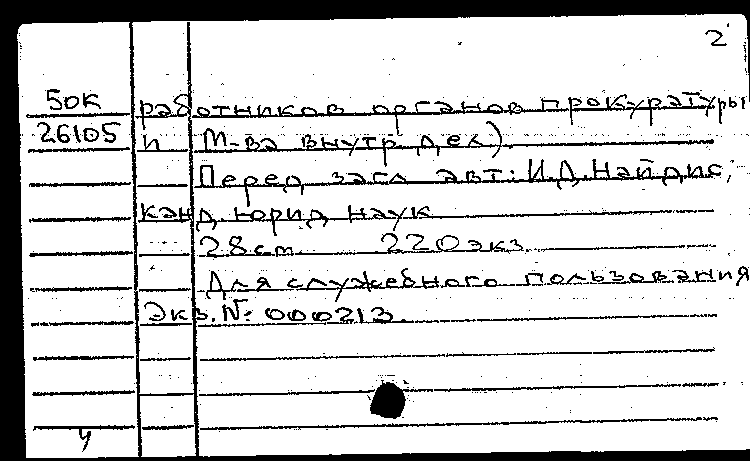 2
50К работников органов прокуратуры
26105 и М-ва внутр дел).
Перед загл авт: И.Д.Найдис,
канд юрид наук
28 cm. 220 экз.
Для служебного пользования
Экз. № 000213.
ч